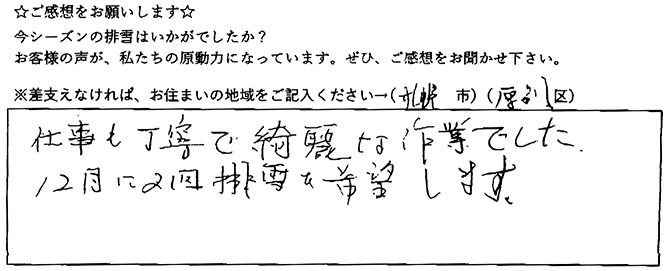 ☆ご感想をお願いします☆
今シーズンの排雪はいかがでしたか?
お客様の声が、私たちの原動力になっています。ぜひ、ご感想をお聞かせ下さい。
※差支えなければ、お住まいの地域をご記入ください→(札幌 市)(厚別区)
仕事も丁寧で綺麗な作業でした。
12月に2回排雪を希望します。